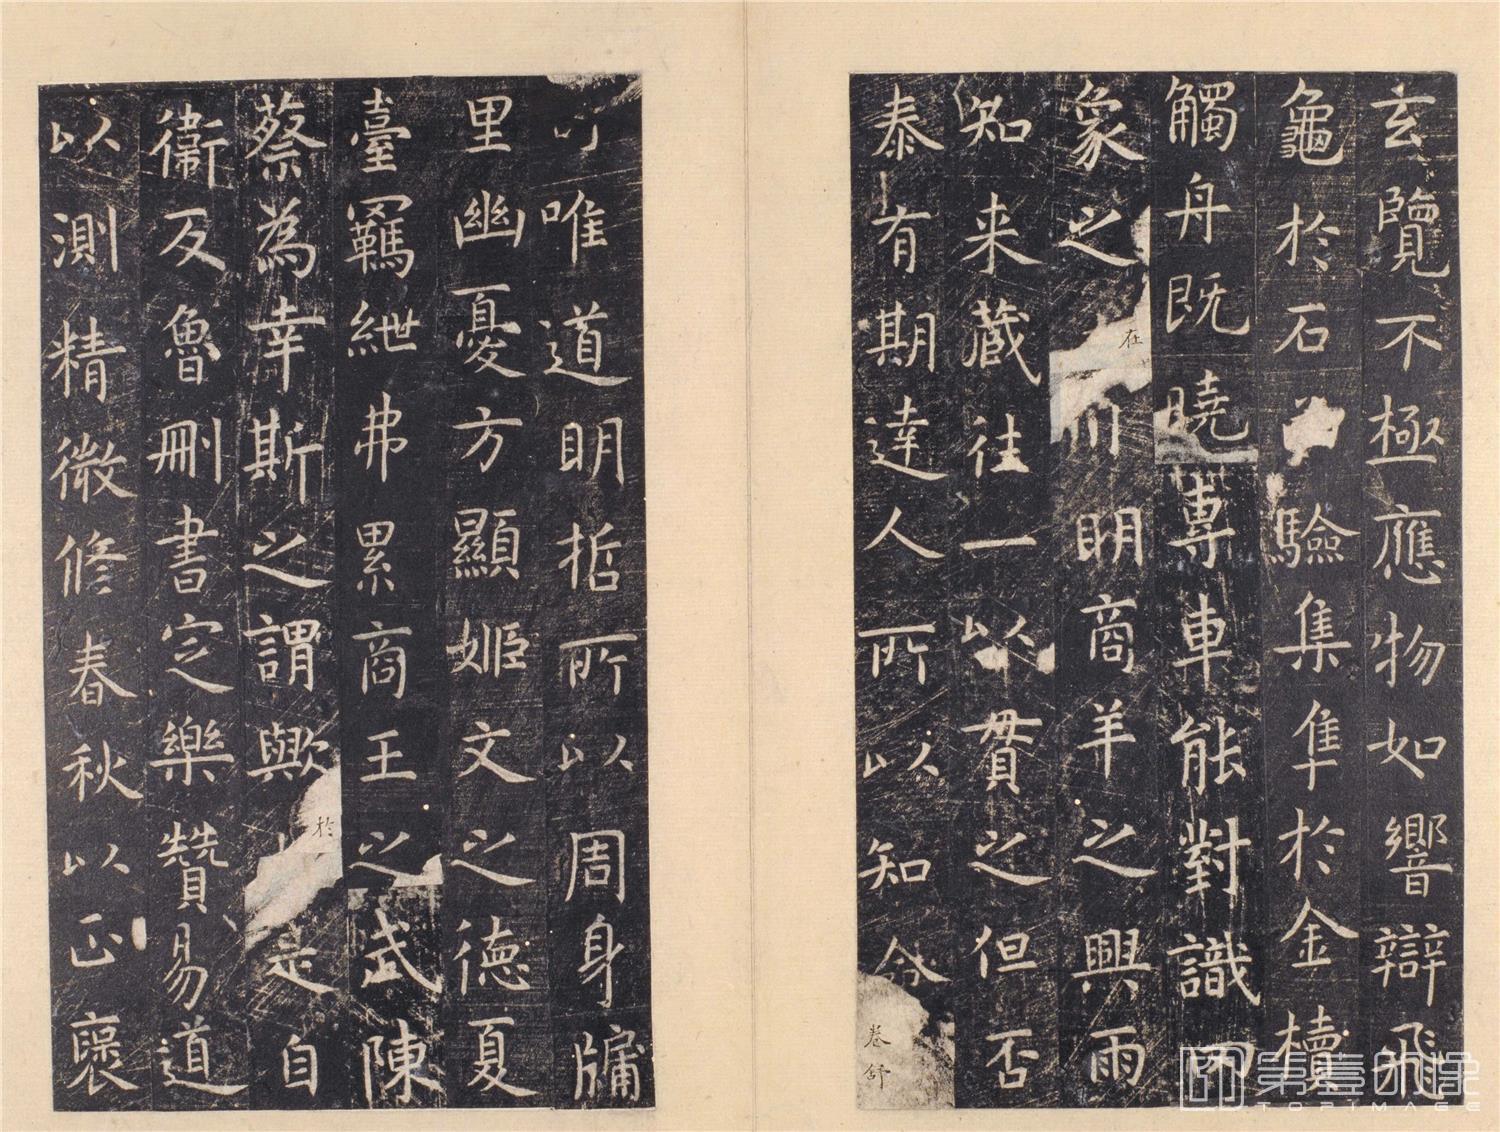 玄覽不極應物如響辯飛
龜於石驗集隼於金櫝
觸舟既曉専車能對識罔
象之在川明商羊之興雨
知来藏往一以貫之但否
泰有期達人所以知命卷舒
唯道明哲所以周身牖
里幽憂方顯姬文之德夏
臺羈紲弗累商王之武陳
蔡為幸斯之謂歟於是自
衞反魯刪書定樂贊易道
以測精微修春秋以正襃
第壹印象
TOPIMAGE